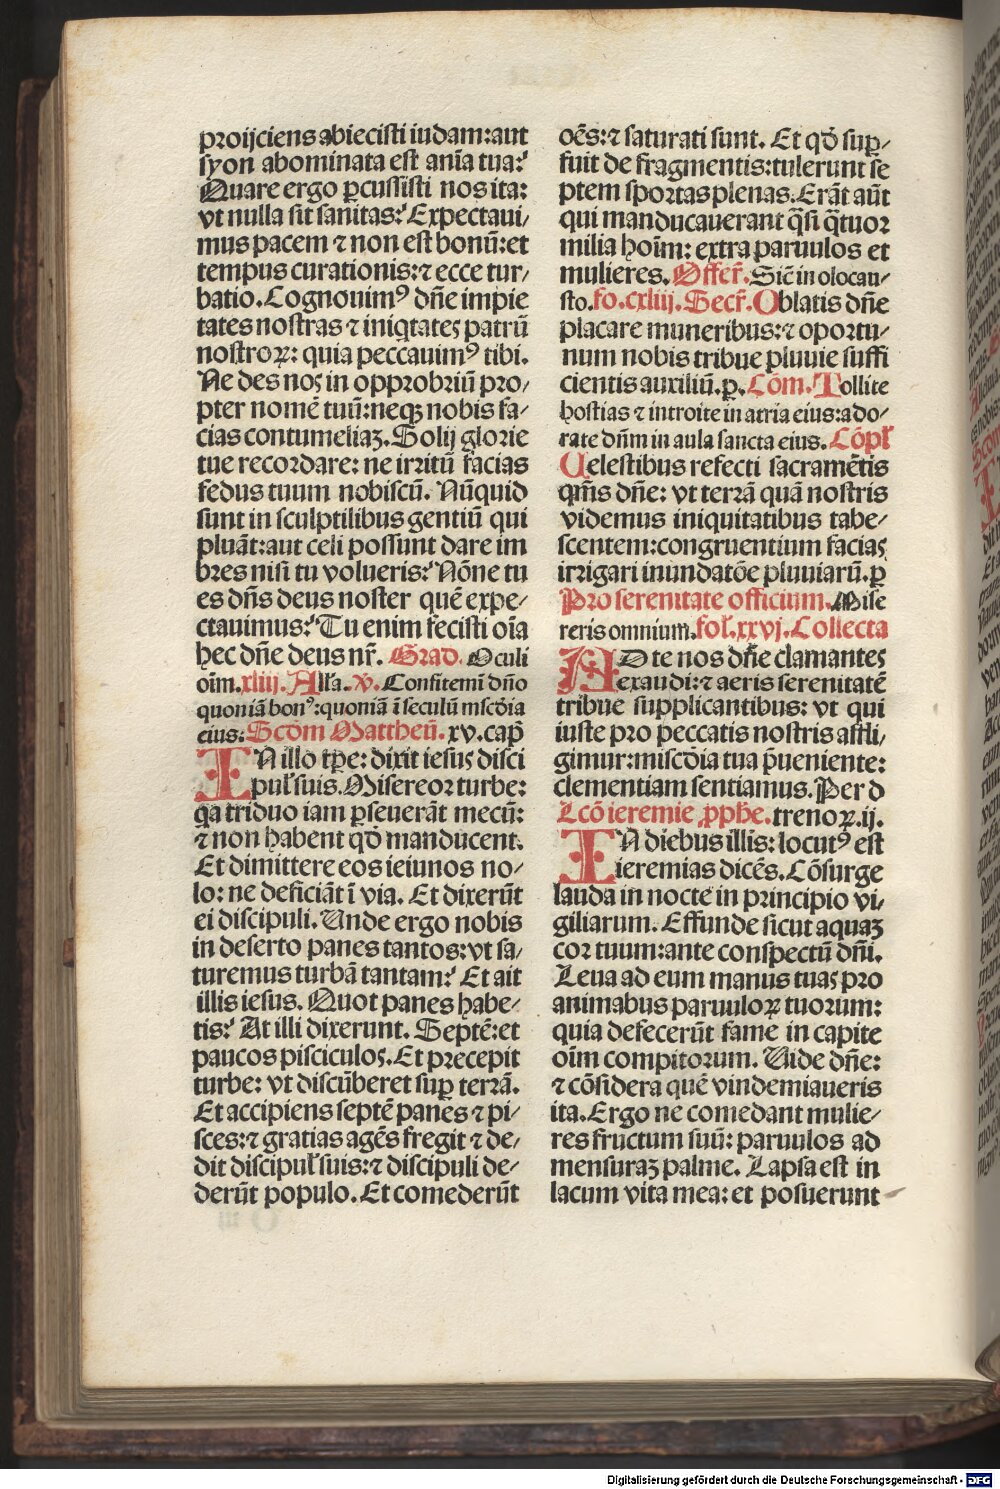 proijciens abiecisti iudam:aut
syon abominata est anīa tua:
Quare ergo ꝑcussisti nos ita:
vt nulla sit sanitas: Expectaui/
mus pacem ⁊ non est bonū:et
tempus curationis:⁊ ecce tur/
batio. Cognouimꝰ dñe impie
tates nostras ⁊ iniqtates patrū
nostroꝝ: quia peccauimꝰ tibi.
Ne des nos in opprobriū pro/
pter nomē tuū:neqꝫ nobis fa/
cias contumeliaꝫ. Solij glorie
tue recordare: ne irritū facias
fedus tuum nobiscū. Nūquid
sunt in sculptilibus gentiū qui
pluāt:aut celi possunt dare im
bres nisi tu volueris: Nōne tu
es dñs deus noster quē expe/
ctauimus: Tu enim fecisti oīa
hec dñe deus nr̄. Grad. Oculi
oīm.xliij. Alla. v. Confitemī dño
quoniā bonꝰ:quoniā ī seculū mscdīa
eius: Scdm Mattheū. xv.cap̄
IN illo tꝑe: dixit iesus disci
pulꝭ suis. Misereor turbe:
qa triduo iam ꝑseuerāt mecū:
⁊ non habent qd manducent.
Et dimittere eos ieiunos no/
lo: ne deficiāt ī via. Et dixerūt
ei discipuli. Unde ergo nobis
in deserto panes tantos: vt sa/
turemus turbā tantam: Et ait
illis iesus. Quot panes habe/
tis: At illi dixerunt. Septē:et
paucos pisciculos. Et precepit
turbe: vt discūberet suꝑ terrā.
Et accipiens septē panes ⁊ pi/
sces:⁊ gratias agēs fregit ⁊ de/
dit discipulꝭ suis:⁊ discipuli de/
derūt populo. Et comederūt
oēs:⁊ saturati sunt. Et qd suꝑ/
fuit de fragmentis:tulerunt se
ptem sportas plenas. Erāt aūt
qui manducauerant q̄si q̄tuor
milia hoīm: extra paruulos et
mulieres. Offer̄. Sic̄ in olocau/
sto. fo.cxliij. Secr̄. Oblatis dñe
placare muneribus:⁊ oportu/
num nobis tribue pluuie suffi
cientis auxiliū. ꝑ. Cōm. Tollite
hostias ⁊ introite in atria eius:ado/
rate dñm in aula sancta eius. Cōpl
Celestibus refecti sacramētis
qm̄s dñe: vt terrā quā nostris
videmus iniquitatibus tabe/
scentem:congruentium facias
irrigari inundatōe pluuiarū. ꝑ
Pro serenitate officium. Mise
reris omnium. fol.xxvj. Collecta
AD te nos dñe clamantes
exaudi:⁊ aeris serenitatē
tribue supplicantibus: vt qui
iuste pro peccatis nostris affli/
gimur:miscdīa tua p̄ueniente:
clementiam sentiamus. Per d
Lcō ieremie ꝓphe. trenoꝝ.ij.
IN diebus illis: locutꝰ est
ieremias dicēs. Cōsurge
lauda in nocte in principio vi/
giliarum. Effunde sicut aquaꝫ
cor tuum:ante conspectū dñi.
Leua ad eum manus tuas pro
animabus paruuloꝝ tuorum:
quia defecerūt fame in capite
oīm compitorum. Uide dñe:
⁊ cōsidera quē vindemiaueris
ita. Ergo ne comedant mulie/
res fructum suū: paruulos ad
mensuraꝫ palme. Lapsa est in
lacum vita mea: et posuerunt
Digitalisierung gefördert durch die Deutsche Forschungsgemeinschaft - DFG